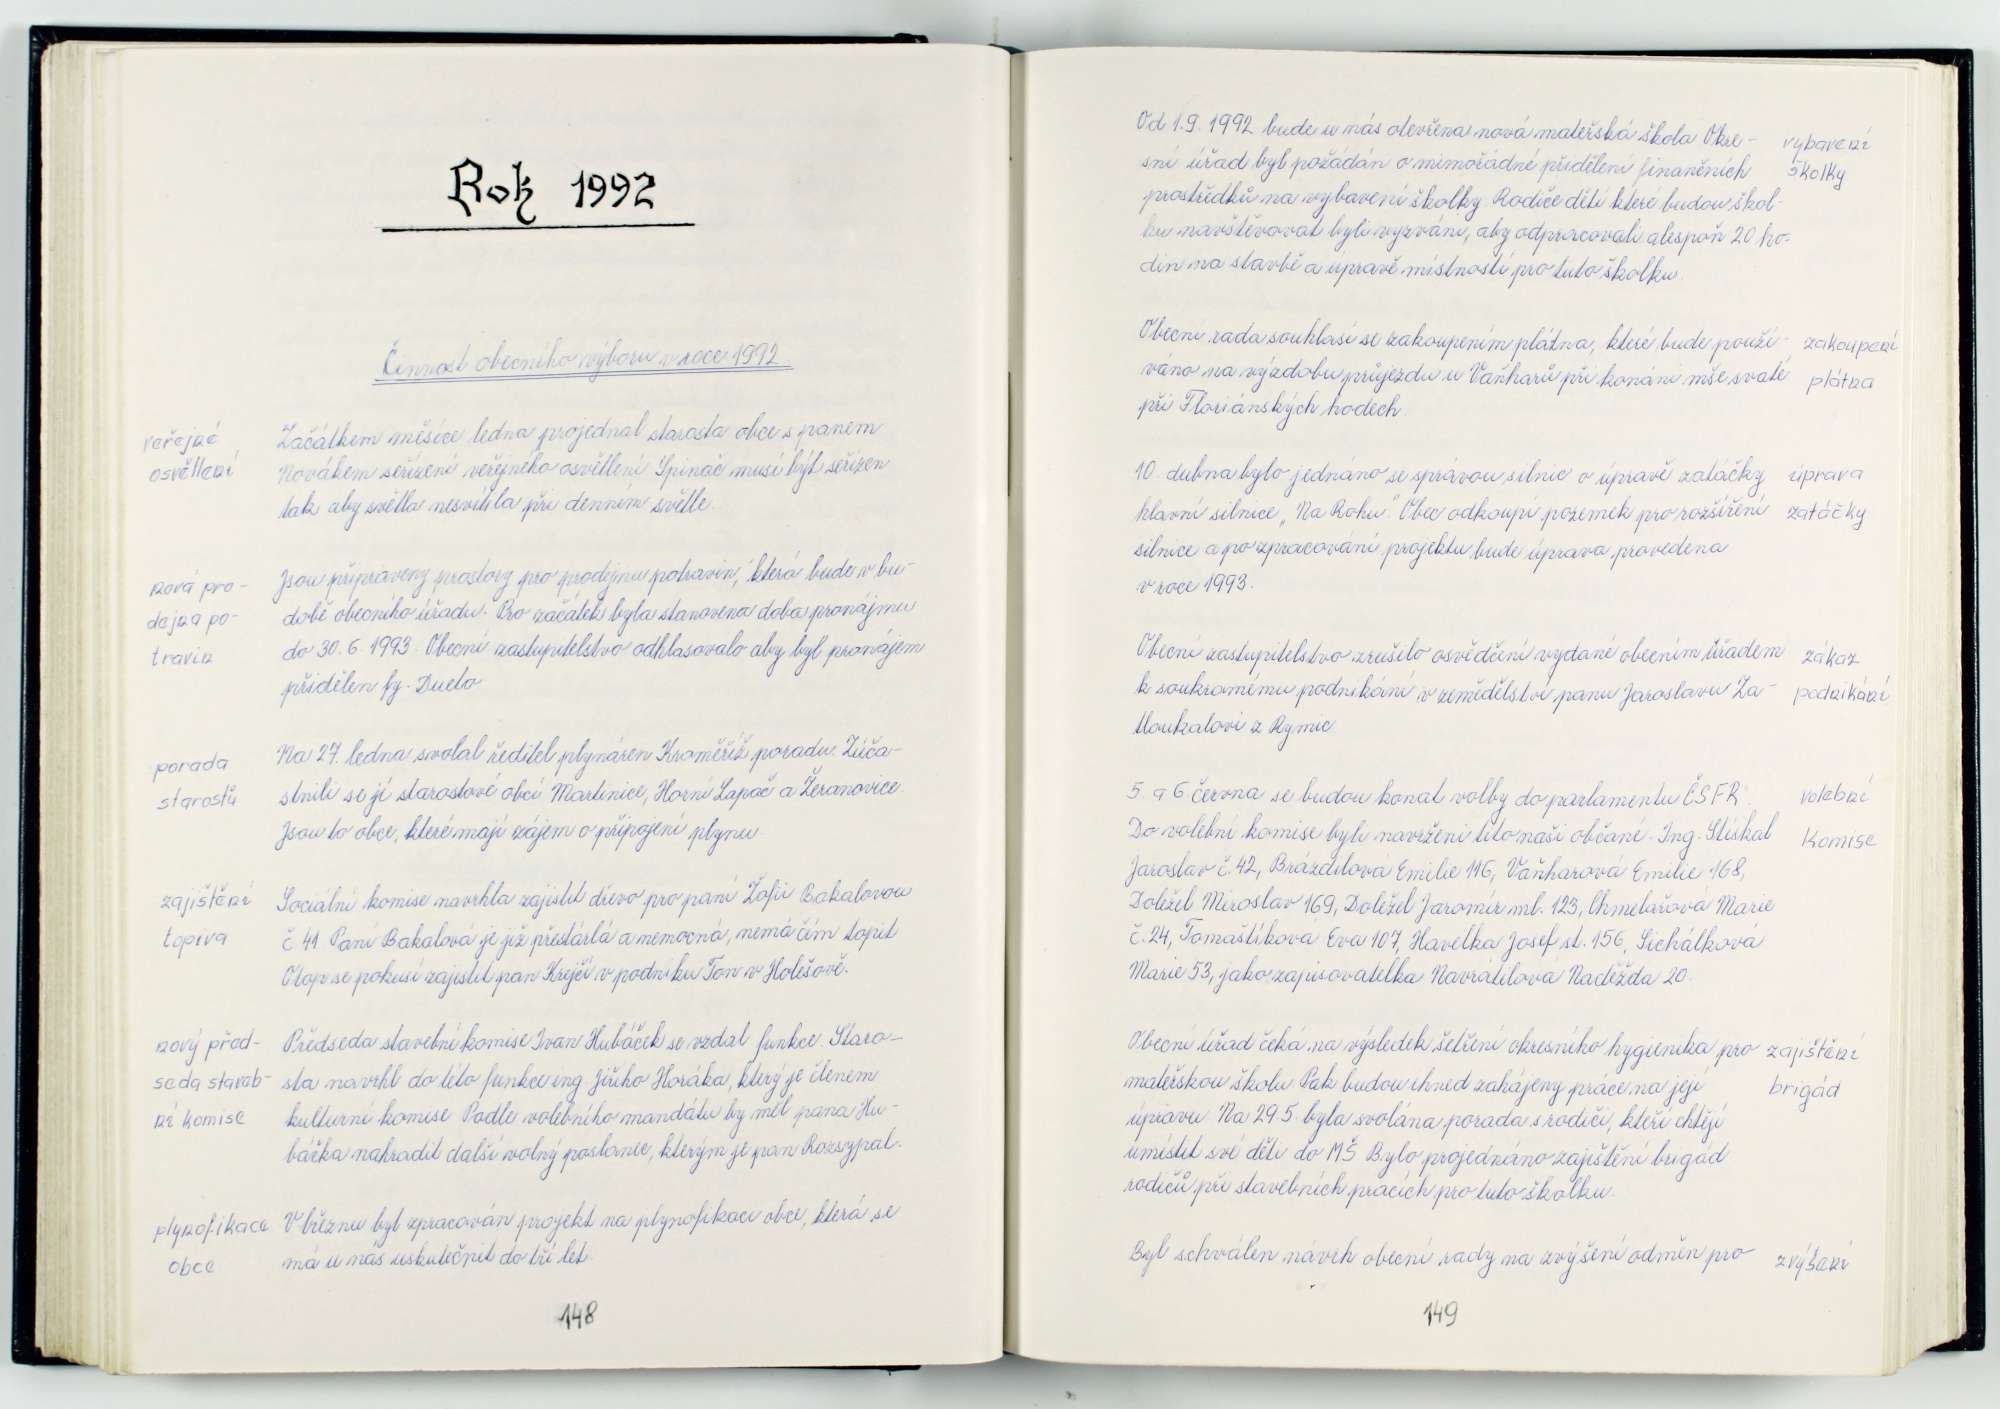 Rok 1992
Činnost obecního výboru v roce 1992
veřejné
osvětlení
Začátkem měsíce ledna projednal starosta obce s panem
Novákem seřízení veřejného osvětlení Spínač musí být seřízen
tak aby světla nesvítila při denním světle.
nová pro-
dejna po-
travin
Jsou připraveny prostory pro prodejnu potravin, která bude v bu-
době obecního úřadu. Pro začátek byla stanovena doba pronájmu
do 30. 6. 1993. Obecní zastupitelstvo odhlasovalo aby byl pronájem
přidělen fy. Dueto
porada
starostů
Na 27. ledna svolal ředitel plynáren Kroměříž poradu. Zúča-
stnili se jí starostové obcí Martinice, Horní Lapač a Žeranovice.
Jsou to obce, které mají zájem o připojení plynu.
zajištění
topiva
Sociální komise navrhla zajistit dřevo pro paní Žofii Bakalovou
č 41 Paní Bakalová je již přestárlá a nemocná, nemá čím topit
Otop se pokusí zajistit pan Krejčí v podniku Ton v Holešově.
nový před-
seda staveb-
ní komise
Předseda stavební komise Ivan Hubáček se vzdal funkce. Staro-
sta navrhl do této funkce ing Jiřího Horáka, který je členem
kulturní komise Podle volebního mandátu by měl pana Hu-
báčka nahradit další volný poslanec, kterým je pan Rozsypal.
plynofikace
obce
V březnu byl zpracován projekt na plynofikaci obce, která se
má u nás uskutečnit do tří let.
148
Od 1.9. 1992 bude u nás otevřena nová mateřská škola Okre-
sní úřad byl požádán o mimořádné přidělení finančních
prostředků na vybavení školky. Rodiče dětí které budou škol-
ku navštěvovat byli vyzváni, aby odpracovali alespoň 20 ho-
din na stavbě a úpravě místností pro tuto školku.
vybavení
školky
Obecní rada souhlasí se zakoupením plátna, které bude použí-
váno na výzdobu průjezdu u Vaňharů při konání mše svaté
při Floriánských hodech.
zakoupení
plátna
10. dubna bylo jednáno se správou silnic o úpravě zatáčky
hlavní silnice „Na Rohu". Obec odkoupí pozemek pro rozšíření
silnice a po zpracování projektu bude úprava provedena
v roce 1993.
úprava
zatáčky
Obecní zastupitelstvo zrušilo osvědčení vydané obecním úřadem
k soukromému podnikání v zemědělství panu Jaroslavu Za-
tloukalovi z Rymic
zákaz
podnikání
5. a 6 června se budou konat volby do parlamentu ČSFR.
Do volební komise byli navrženi tito naši občané - Ing. Stískal
Jaroslav č. 42, Brázdilová Emilie 116, Vaňharová Emilie 168,
Doležel Miroslav 169, Doležel Jaromír ml. 123, Chmelařová Marie
č. 24, Tomaštíkova Eva 107, Havelka Josef st. 156, Sichálková
Marie 53, jako zapisovatelka Navrátilová Naděžda 20.
volební
komise
Obecní úřad čeká na výsledek šetření okresního hygienika pro
mateřskou školu Pak budou ihned zahájeny práce na její
úpravu Na 29.5. byla svolána porada s rodiči, kteří chtějí
umístit své děti do MŠ Bylo projednáno zajištění brigád
rodičů při stavebních pracích pro tuto školku.
zajištění
brigád
Byl schválen návrh obecní rady na zvýšení odměn pro
zvýšení
149